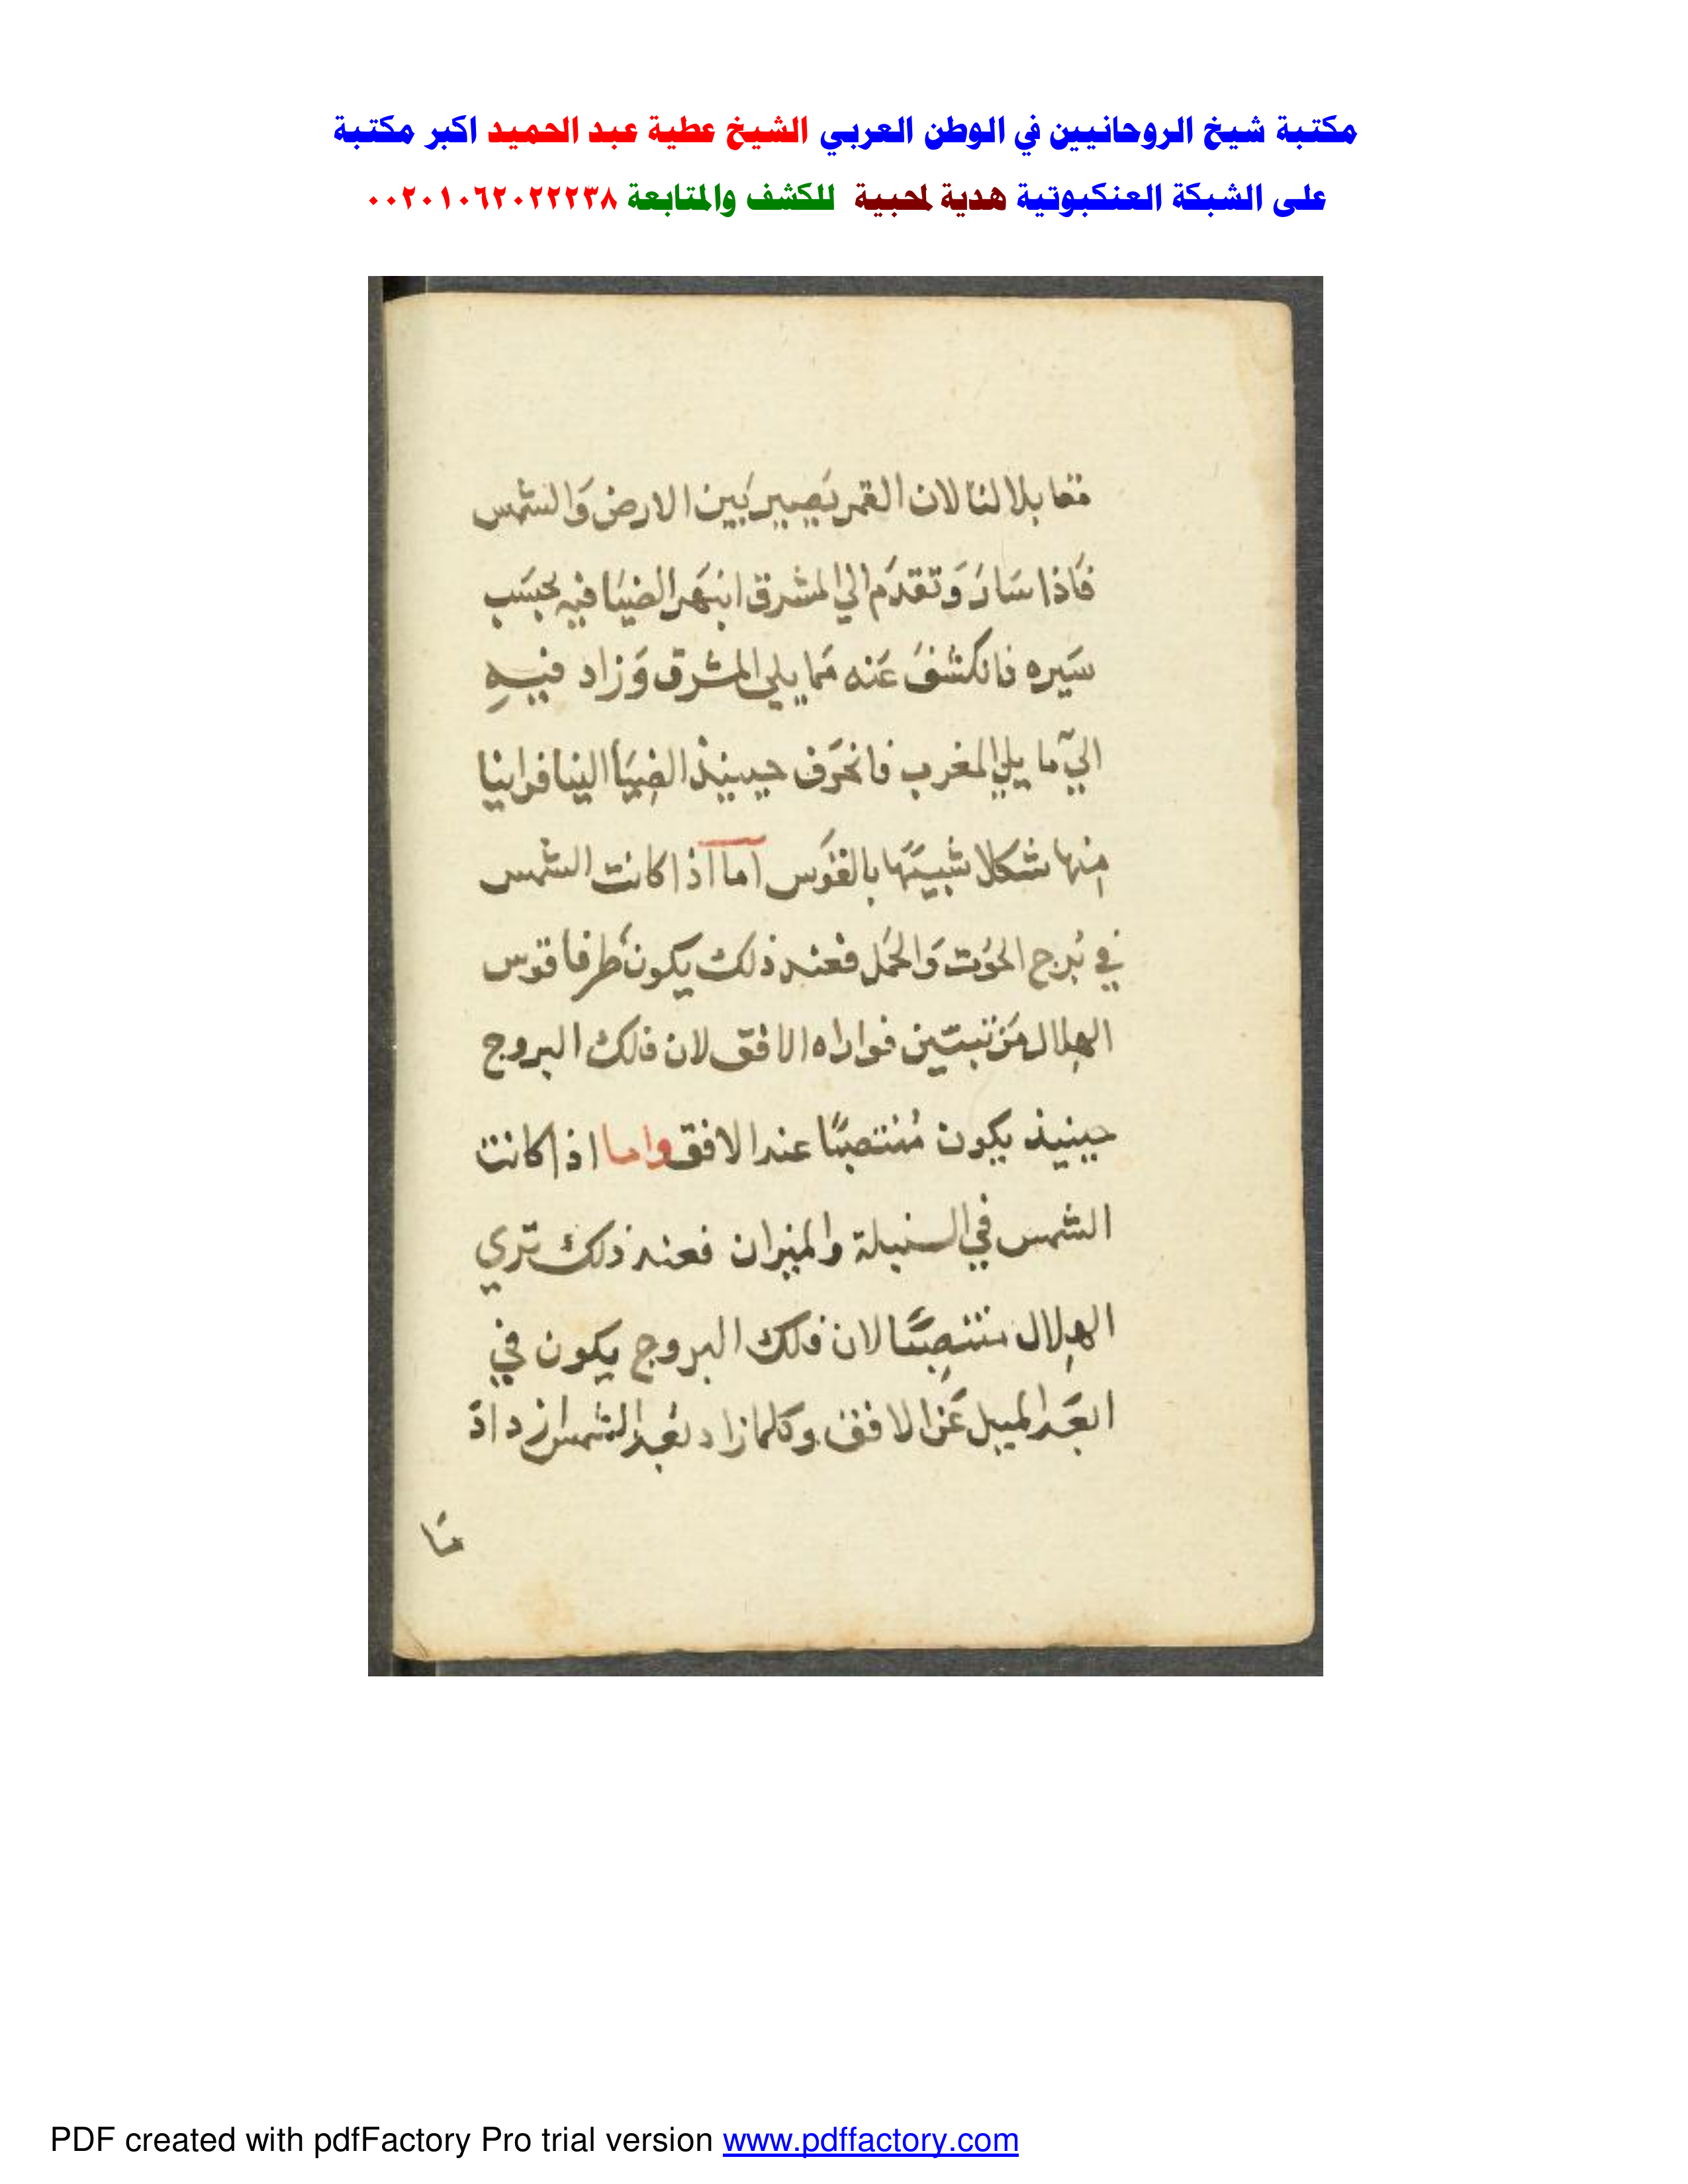 مكتبة شيخ الروحانيين في الوطن العربي الشيخ عطية عبد الحميد اكبر مكتبة
على الشبكة العنكبوتية هدية لمحبية للكشف والمتابعة ٠٠٢٠١٠٦٢٠٢٢٢٣٨
مقابلا لنا لان القمر يَصير بَين الارض وَالشمس
فَاذا سَارَ وَتقدَم الي المشرق الضيَا فيه بحسَب
سَيره فانكشفَ عَنه مَما يلي المشرق وَزاد فيهِ
اليَ ما يلي المغرب فانحَرَف حينيذ الضِيَا الينا فراينا
مِنها شكلا شبيهًا بالقوَس اما اذا كانت الشمس
في بُرج الحوُت وَالحمَل فعند ذلك يكون طَرفا قوس
الهِلال مَن فواراه الافق لان فلك البروج
حينيذ يكون مُنتصبًا عند الافق واما اذا كانت
الشمس في السنبلة والميزان فعند ذلك تري
الهِلال منتصِبًا لان فلك البروج يكون في
ابعَد الميل عَن الافق وكلما زاد بعُد الشمس ازدادَ